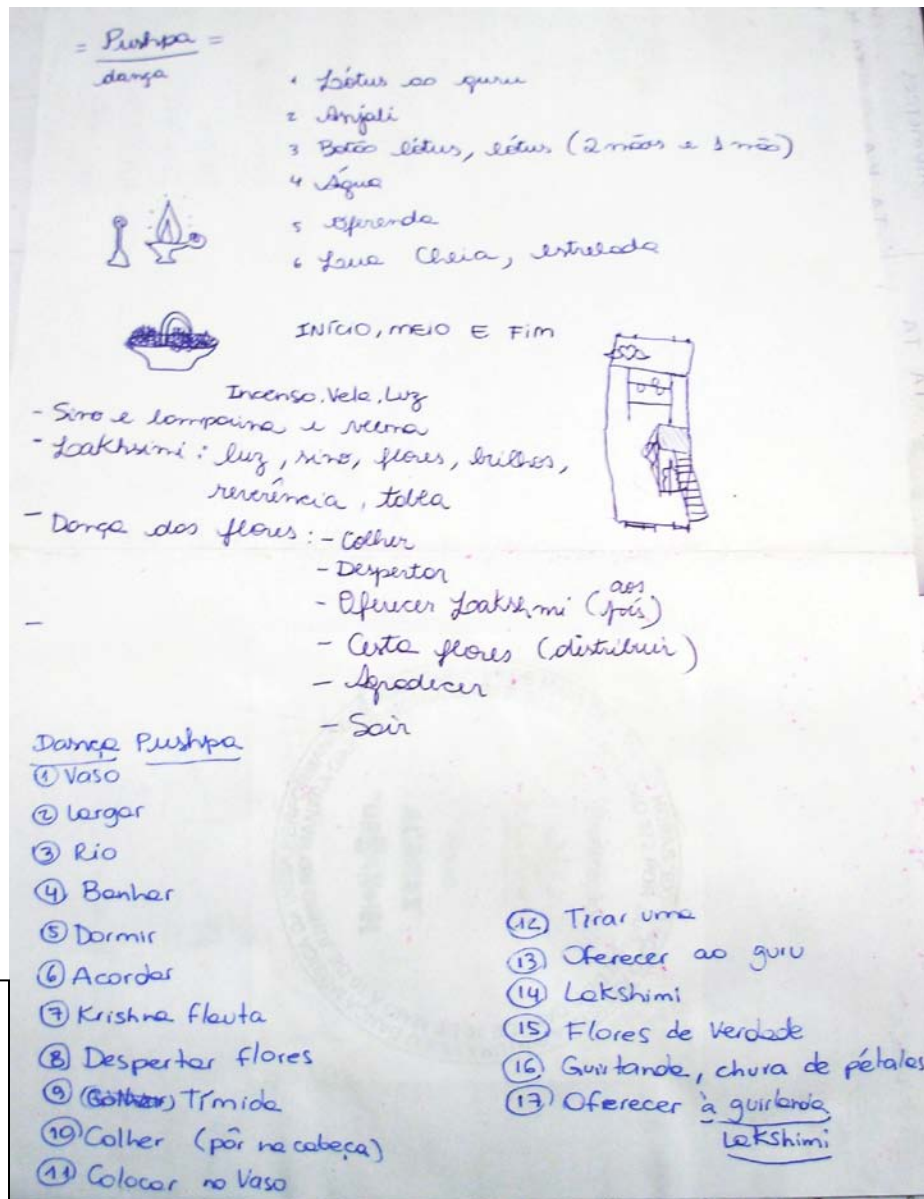 = Pushpa =
dança
1 Lótus ao guru
2 Anjali
3 Botão lótus, lótus (2 mãos e 1 mão)
4 Água
5 Oferenda
6 Lua Cheia, estrelada
INÍCIO, MEIO E FIM
Incenso, Vela, Luz
- Sino e lamparina e
- Lakhsimi: luz, sino, flores, brilhos,
reverência, tabla
- Dança das flores: - Colher
- Despertar
- Oferecer Lakshmi (aos pés)
- Cesta flores (distribuir)
- Agradecer
- Sair
Dança Pushpa
1 Vaso
2 Largar
3 Rio
4 Banhar
5 Dormir
6 Acordar
7 Krishna flauta
8 Despertar flores
9 Tímida
10 Colher (pôr na cabeça)
11 Colocar no Vaso
12 Tirar uma
13 Oferecer ao guru
14 Lakshimi
15 Flores de Verdade
16 Guirlanda, chuva de pétalas
17 Oferecer à guirlanda
Lakshimi